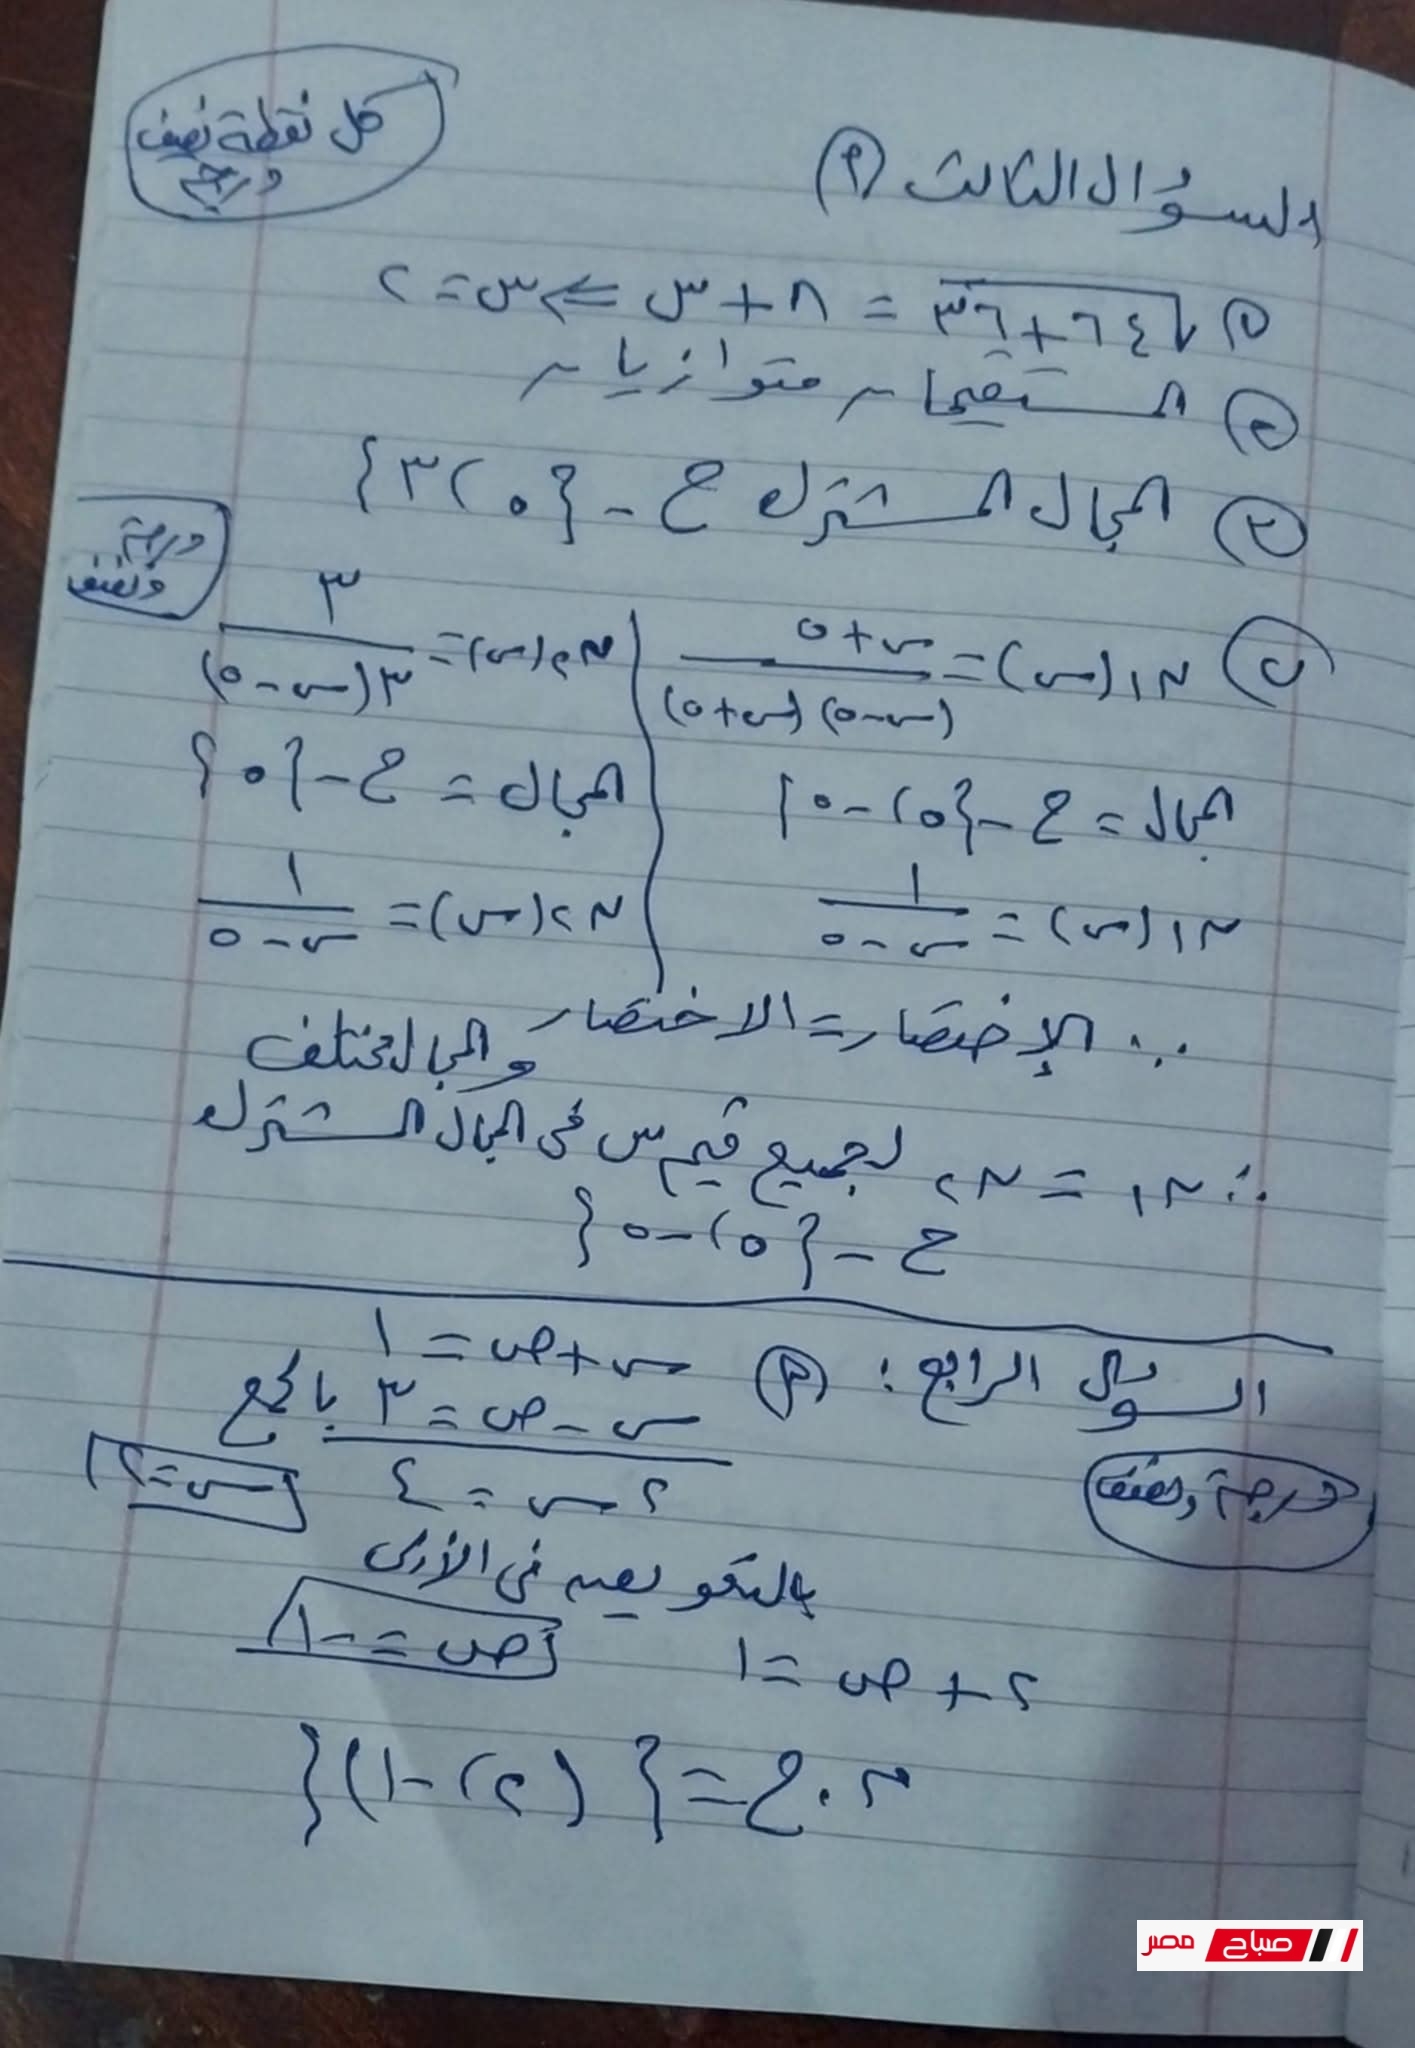 كل نقطة نصف
درجة
السؤال الثالث (٩)
(١) √٦٤+٣٦ = ٨ + س ⇐ س = ٢
(٢) المستقيمان متوازيان
(٣) المجال المشترك ح - {٠، ٣}
درجة ونصف
(ب) ن١(س) = (س+٥) / (س-٥)(س+٥)
ن٢(س) = ٣ / ٣(س-٥)
المجال = ح - {٥، -٥}
المجال = ح - {٥}
ن١(س) = ١ / س-٥
ن٢(س) = ١ / س-٥
∵ الإختصار = الاختصار والمجال مختلف
∴ ن١ = ن٢ لجميع قيم س في المجال المشترك
ح - {٥، -٥}
السؤال الرابع : (٩) س + ص = ١
درجة ونصف
س - ص = ٣ بالجمع
٢س = ٤
س = ٢
بالتعويض في الأولى
٢ + ص = ١
ص = -١
م.ح = {(٢، -١)}
صباح مصر